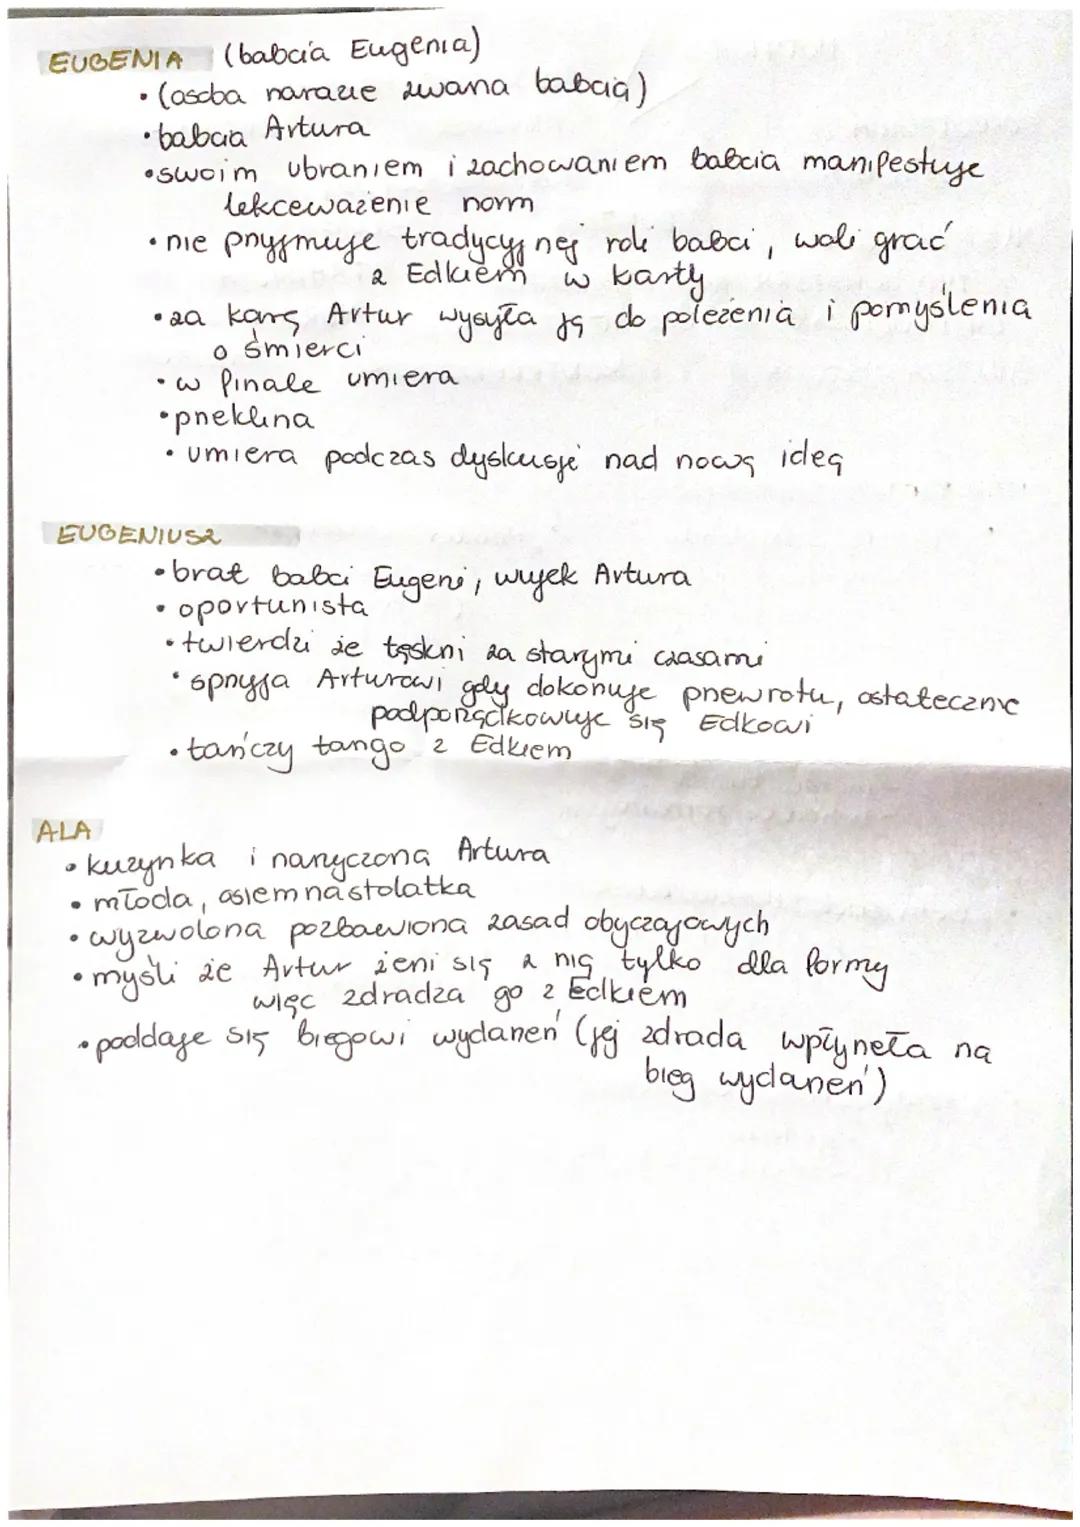 EUGENIA (babcia Eugenia)
• (osoba narazie zwana babcią)
• babcia Artura
• swoim ubraniem i zachowaniem babcia manifestuje
lekceważenie norm
• nie przyjmuje tradycyjnej roli babci, woli grać
z Edkiem w karty
• za karę Artur wysyła ją do poleżenia i pomyślenia
o śmierci
• w finale umiera
• przeklina
• umiera podczas dyskusji nad nową ideą
EUGENIUSZ
• brat babci Eugeni, wujek Artura
• oportunista
• twierdzi że tęskni za starymi czasami
• sprzyja Arturowi gdy dokonuje przewrotu, ostatecznie
podporządkowuje się Edkowi
• tańczy tango z Edkiem
ALA
• kuzynka i narzyczoną Artura
• młoda, osiemnastolatka
• wyzwolona pozbawiona zasad obyczajowych
• myśli że Artur żeni się z nią tylko dla formy
więc zdradza go z Edkiem
• poddaje się biegowi wydarzeń (jej zdrada wpłyneła na
bieg wydarzeń)